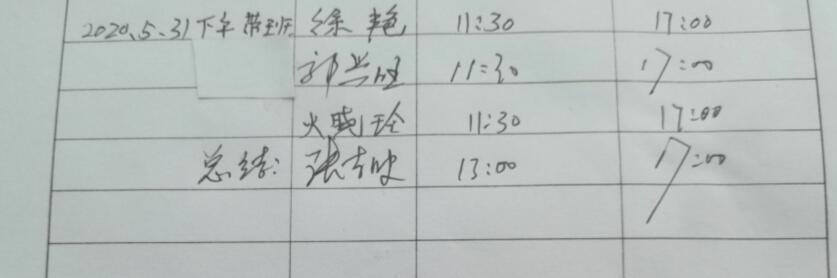 2020.5.31下午 带班 徐艳 11:30 17:00
郭兴旺 11:30 17:00
火晓玲 11:30 17:00
总结: 张吉 13:00 17:00